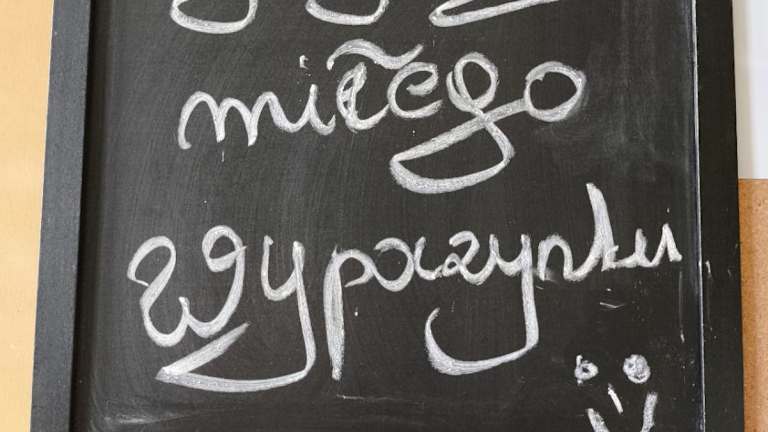 miłego
Wypoczynku